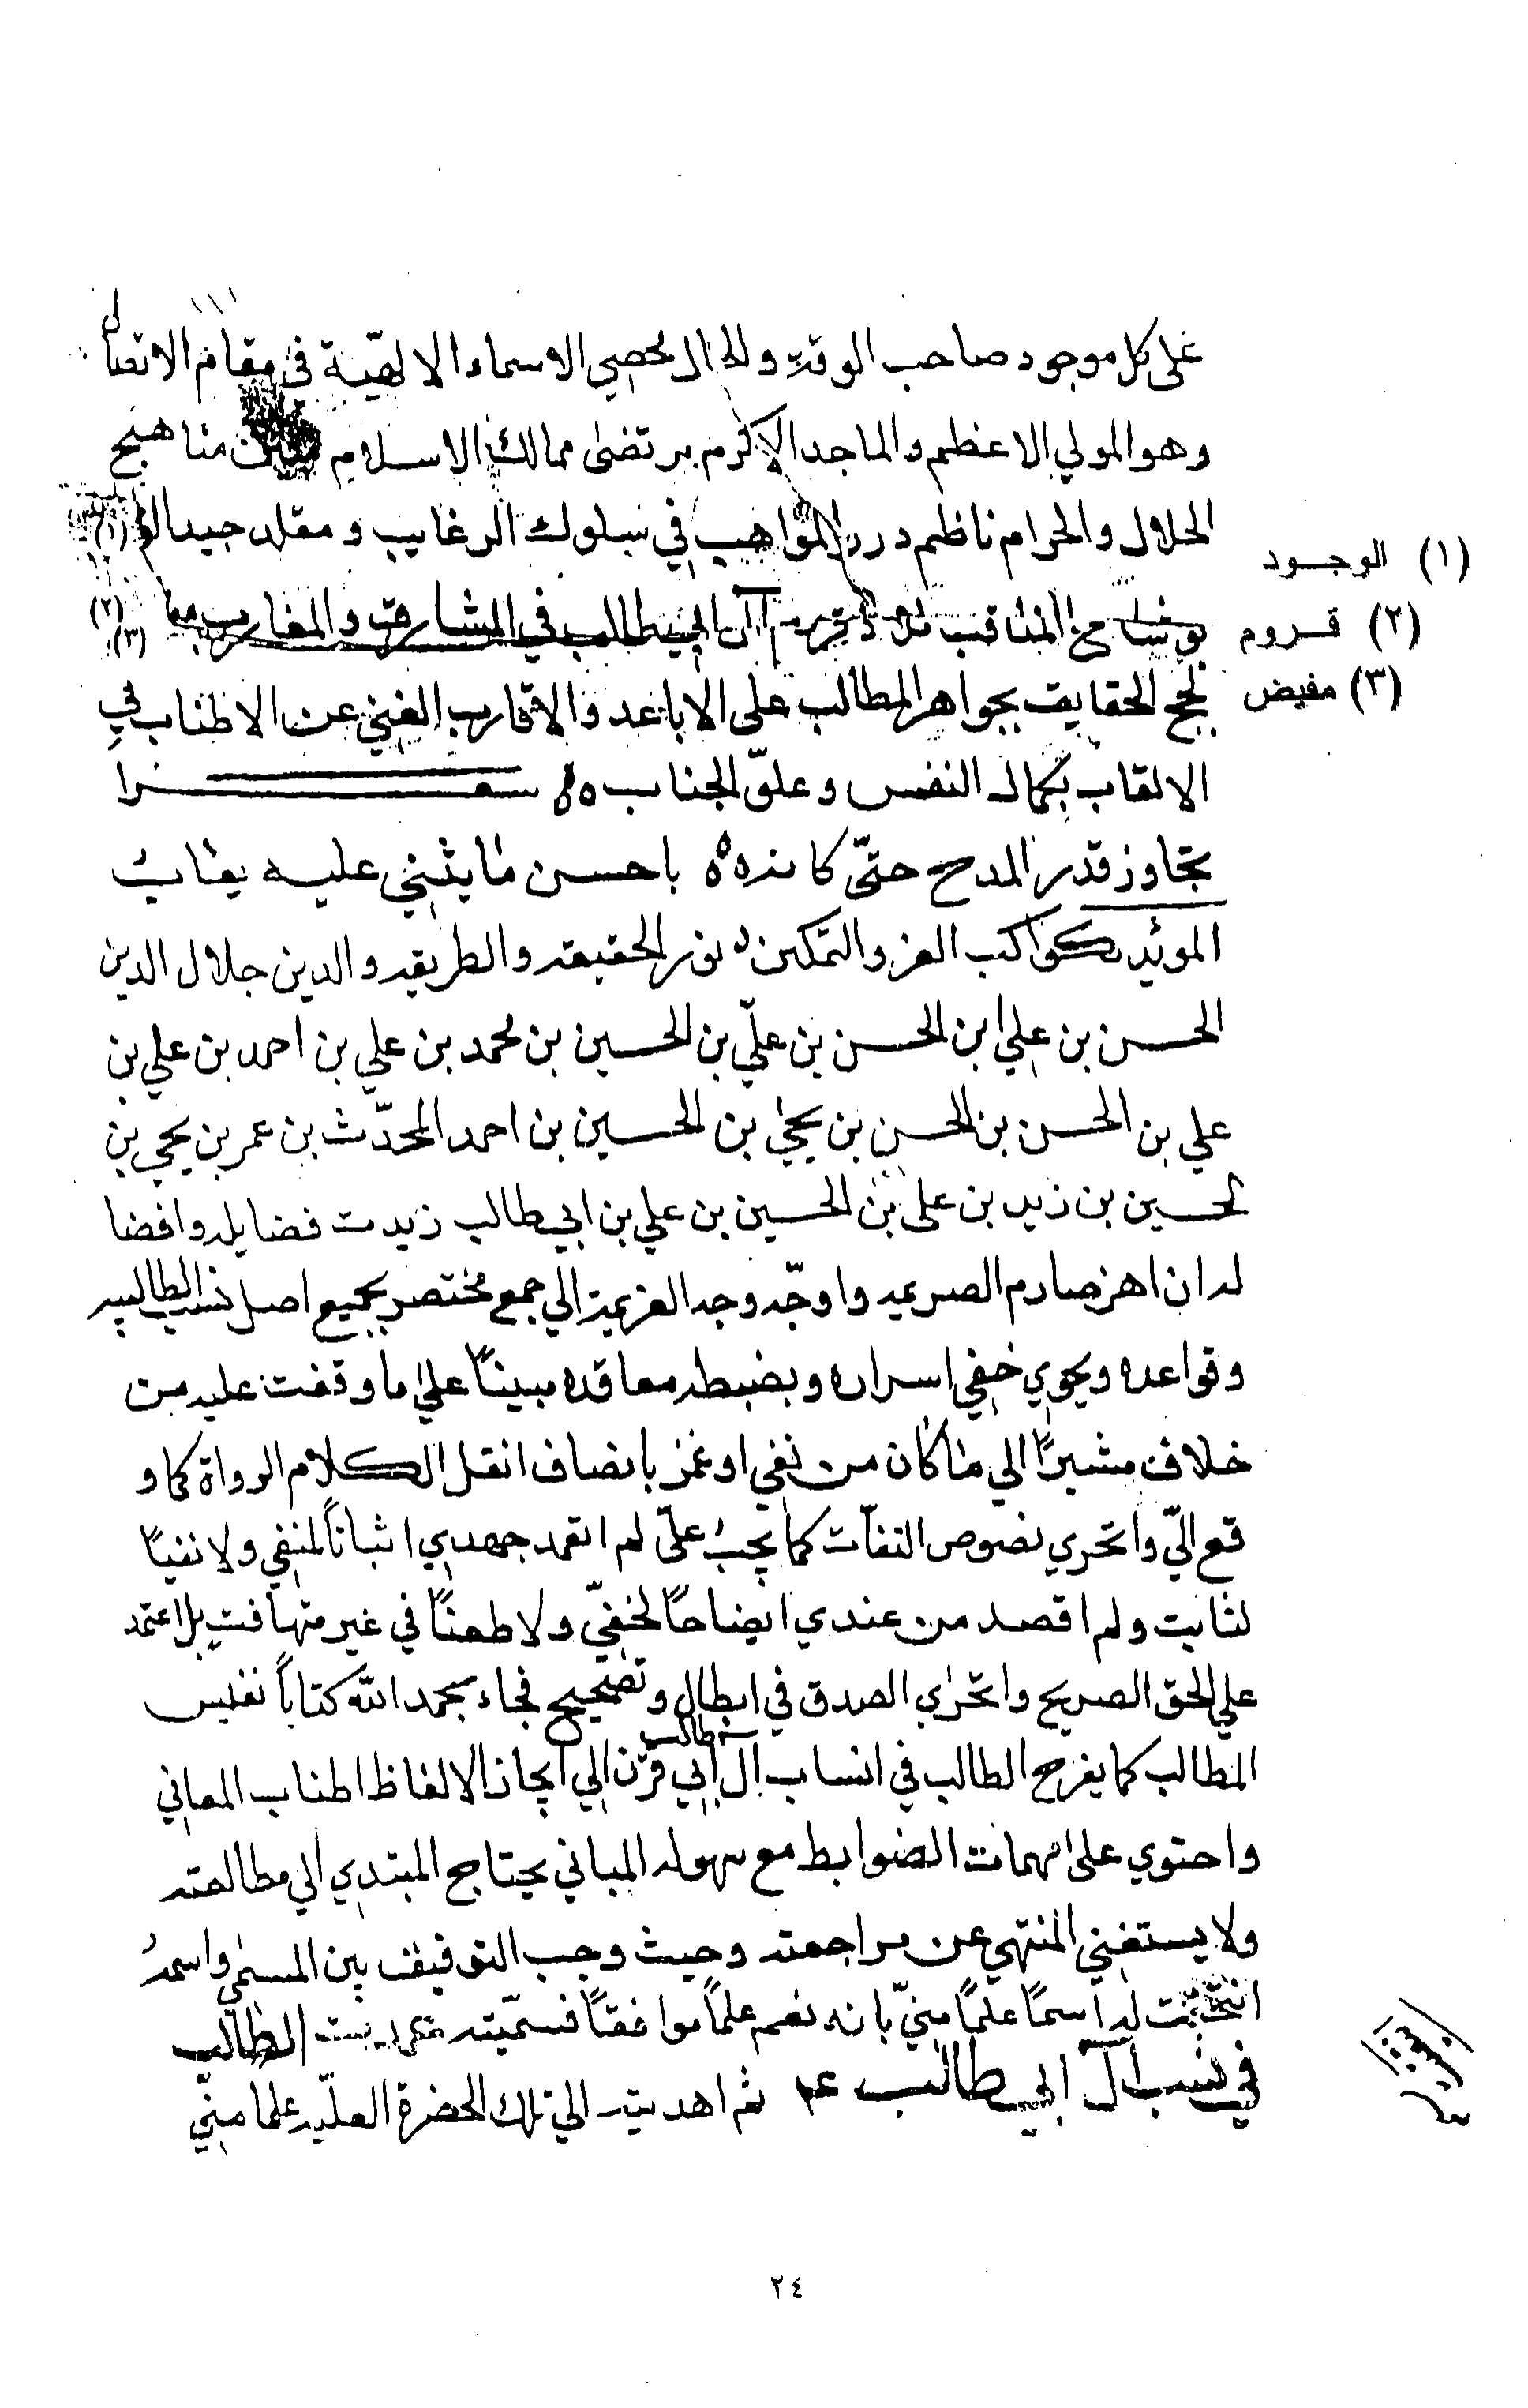 على كل موجود صاحب الوقت والحال محصي الاسماء الالهيّة في مقام الاتصال
وهو المولي الاعظم والماجد الاكرم مرتضى ممالك الاسلام مبين مناهج
الحلال والحرام ناظم درر المواهب في سلوك الرغايب ومقلد جيد (١)
(١) الوجود
بوشاح المناقب آل ابي طالب في المشارق والمغارب (٢)
(٣)
(٢) قروم
لجج الحقايق بجواهر المطالب على الاباعد والاقارب الغني عن الاطناب في
(٣) مفيض
الالقاب بكمال النفس وعلوّ الجناب ه‍ شعرا
تجاوز قدر المدح حتّى كانه ه باحسن ما يثني عليه يعاب
الموئيد بكواكب العز والتمكين نور الحقيقه والطريقه والدين جلال الدين
الحسن بن علي بن الحسن بن عليّ بن الحسين بن محمد بن علي بن احمد بن علي بن
علي بن الحسن بن الحسن بن يحيى بن الحسين بن احمد المحدّث بن عمر بن يحيى بن
لحسين بن زيد بن على بن الحسين بن علي بن ابي طالب زيدت فضايله وافضا
له ان اهز صارم الصريمه واوجّه وجه العزيمة الي جمع مختصر يجمع اصل نسب الطالبيه
وقواعده ويحوي خفي اسراره وبضبطه معاقده مبينًا علي ما وقفت عليه من
خلاف مشيرًا الي ما كان من نفي او غمز بانصاف انقل الكلام الرواة كما و
قع اليّ واتحري نصوص الثقات كما يجبُ عليّ لم اتعمد جهدي اثباتاً لمنفي ولا نفيًا
لثابت ولم اقصد من عندي ايضاحًا لخفيّ ولا طعنًا في غير متهافت بل اعتمد
على الحق الصريح واتحرى الصدق في ابطال وتصحيح فجاء بحمد الله كتاباً نفيس
المطالب كما يفرح الطالب في انساب آل ابي طالب قرن الي ايجاز الالفاظ اطناب المعاني
واحتوي على مهمات الضوابط مع سهوله المباني يحتاج المبتدي الي مطالعته
ولا يستغني المنتهي عن مراجعته وحيث وجب التوفيق بين المسمى واسمهُ
انتخبت له اسمًا علمًا منيّ بانه نعم علماً موافقًا فسمّيته عمدت الطالب
في نسب آل ابي طالب ثم اهديته الي تلك الحضرة العليّه علما منّي
٢٤